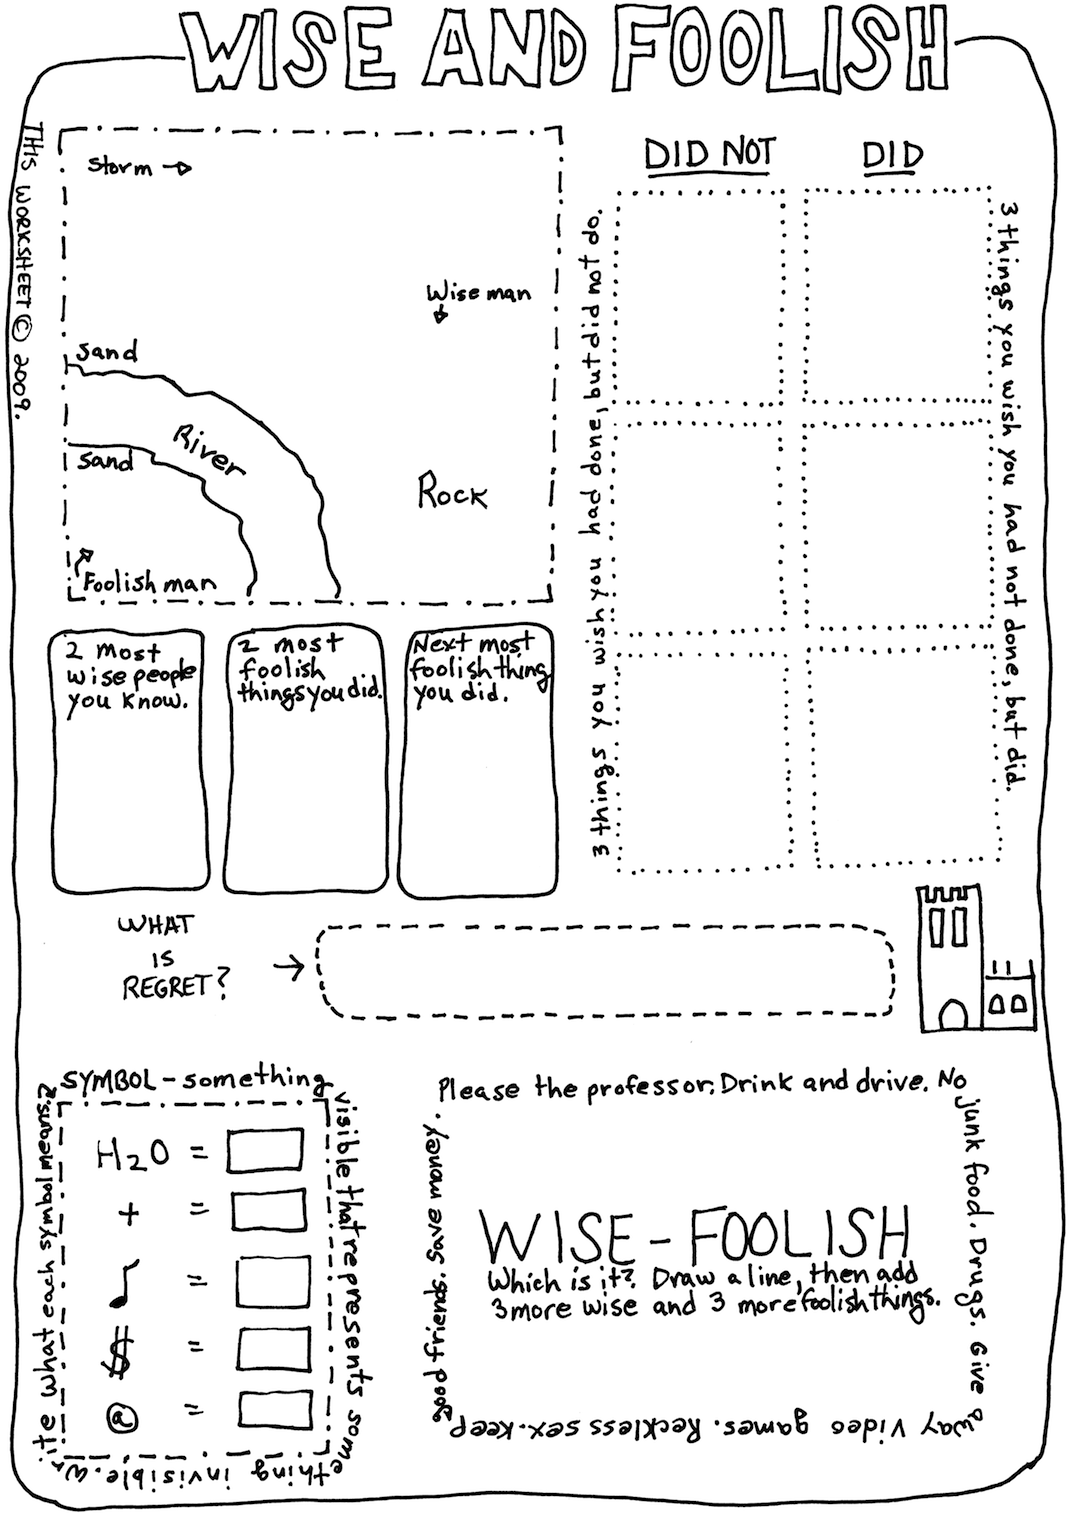 WISE AND FOOLISH
THIS WORKSHEET © 2009.
Storm →
Wise man
Sand
River
Sand
Rock
Foolish man
DID NOT
DID
3 things you wish you had done, but did not do.
3 things you wish you had not done, but did.
2 most
wise people
you know.
2 most
foolish
things you did.
Next most
foolish thing
you did.
WHAT
IS
REGRET? →
SYMBOL - something
visible that represents some
thing invisible. wr
ite what each symbol means.
H2O =
+ =
♪ =
$ =
@ =
Please the professor. Drink and drive. No
junk food. Drugs. Give
away video games. Reckless sex. Keep
good friends. Save money.
WISE - FOOLISH
Which is it? Draw a line, then add
3 more wise and 3 more foolish things.